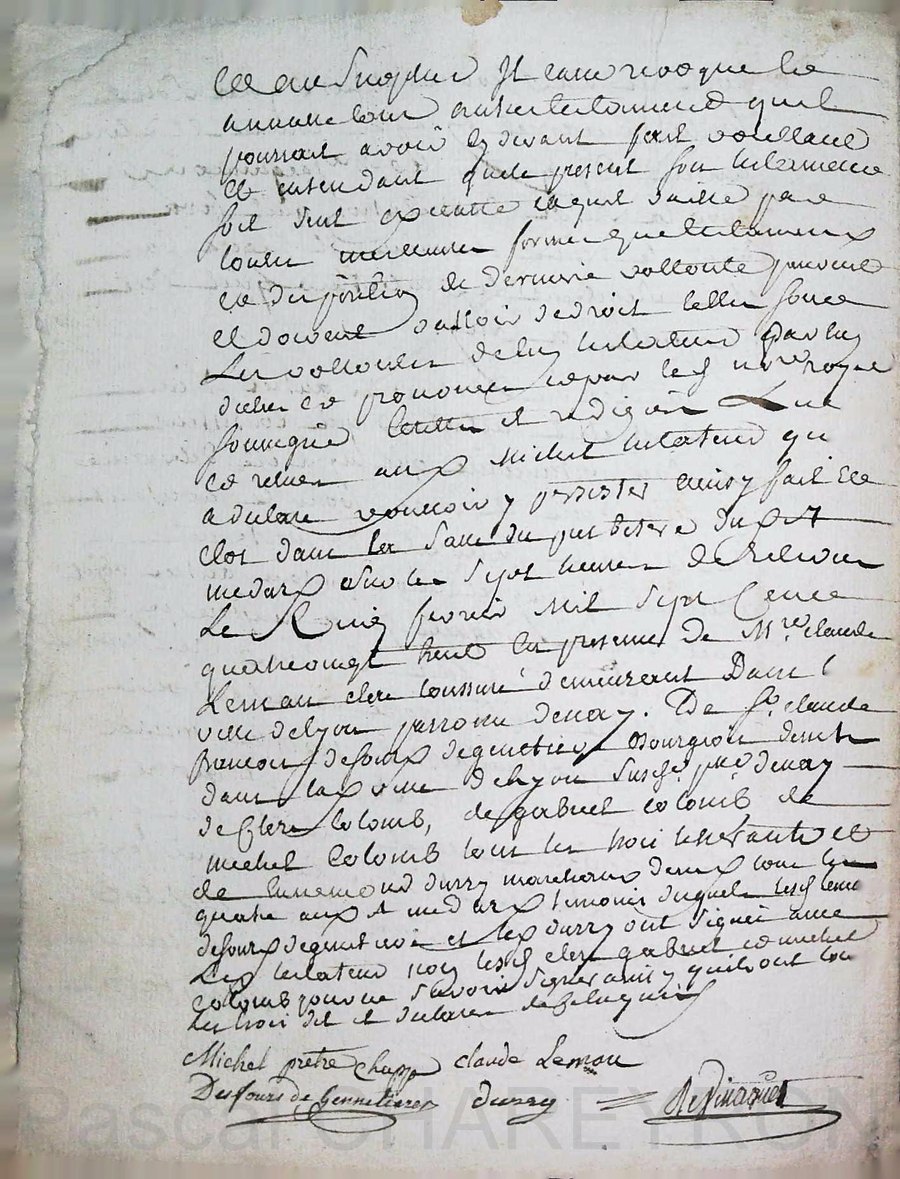 et au surplus Il casse revoque et
annulle tout autre testament quil
pourrait avoir cy devant fait voullant
et entendant que le present son testament
soit seul execute et quil vaille par
toutes meilleures formes que testament
et disposition de derniere vollonte peuvent
et doivent valloir de droit telles sont
Les vollontés de luy testateur par luy
dictées et prononcées et par led nore royal
soussigné Ecrittes et redigées Lue
et relue aud sr Michel testateur qui
a declaré vouloir y persister ainsy fait et
clos dans la salle du presbitere dud St
medard sur les sept heures de relevée
Le fevrier mil sept Cent
quatrevingt huit En presence de Mre claude
Lemau clerc tonssuré demeurant Dans la
ville de lyon parroisse denay. De sr claude
francois desfours degenetieres Bourgeois demt
dans lad ville de lyon susd. psse denay
de Clere Colomb, de gabriel colomb et
michel Colomb tous les trois
de Ennemond durry marchand demt tous les
quatre aud St medard temoins desquels lesd lemau
desfours degenetiere et led durry ont signé avec
Led testateur non lesd clere gabriel et michel
colomb pour ne savoir signer ainsy quils ont tous
les trois dit et declaré de ce enquis
Michel prêtre claude Lemau
Desfours de Gennetieres durry
Pascal CHAREYRON